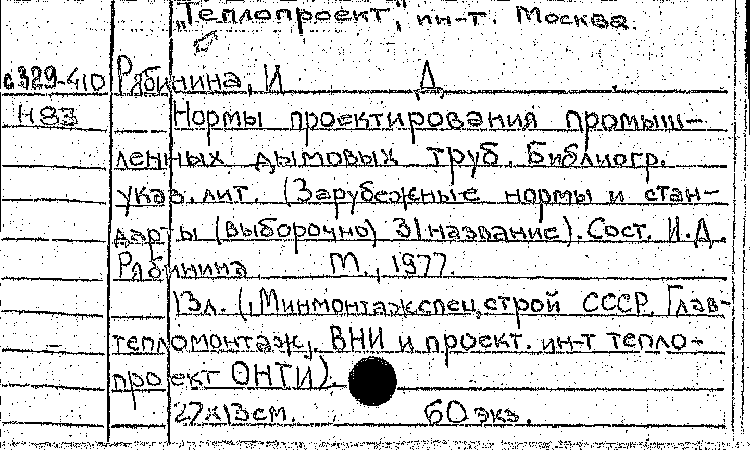 "Теплопроект", ин-т. Москва.
с329-410 Рябинина, И Д.
Н83 Нормы проектирования промыш-
ленных дымовых труб. Библиогр.
указ. лит. (Зарубежные нормы и стан-
дарты (выборочно) 31 название). Сост. И.Д.
Рябинина М., 1977.
13л. (,Минмонтажспецстрой СССР. Глав-
тепломонтаж, ВНИ и проект. ин-т тепло-
проект ОНТИ).
27х13см. 60 экз.